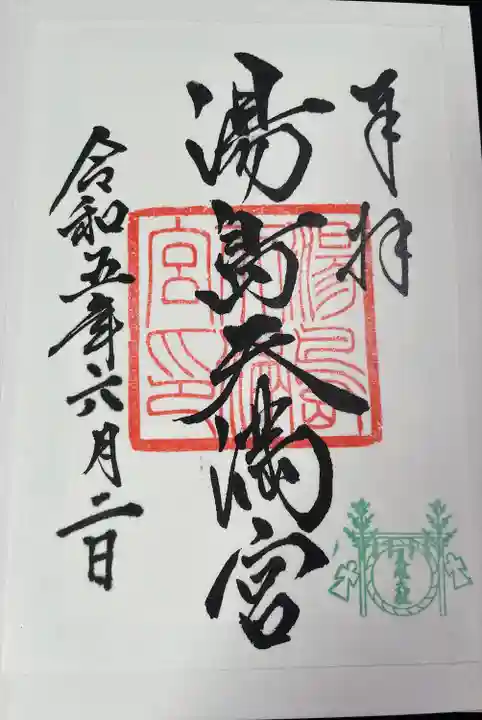 奉拝
湯島天満宮
令和五年六月二日
湯島天満宮印